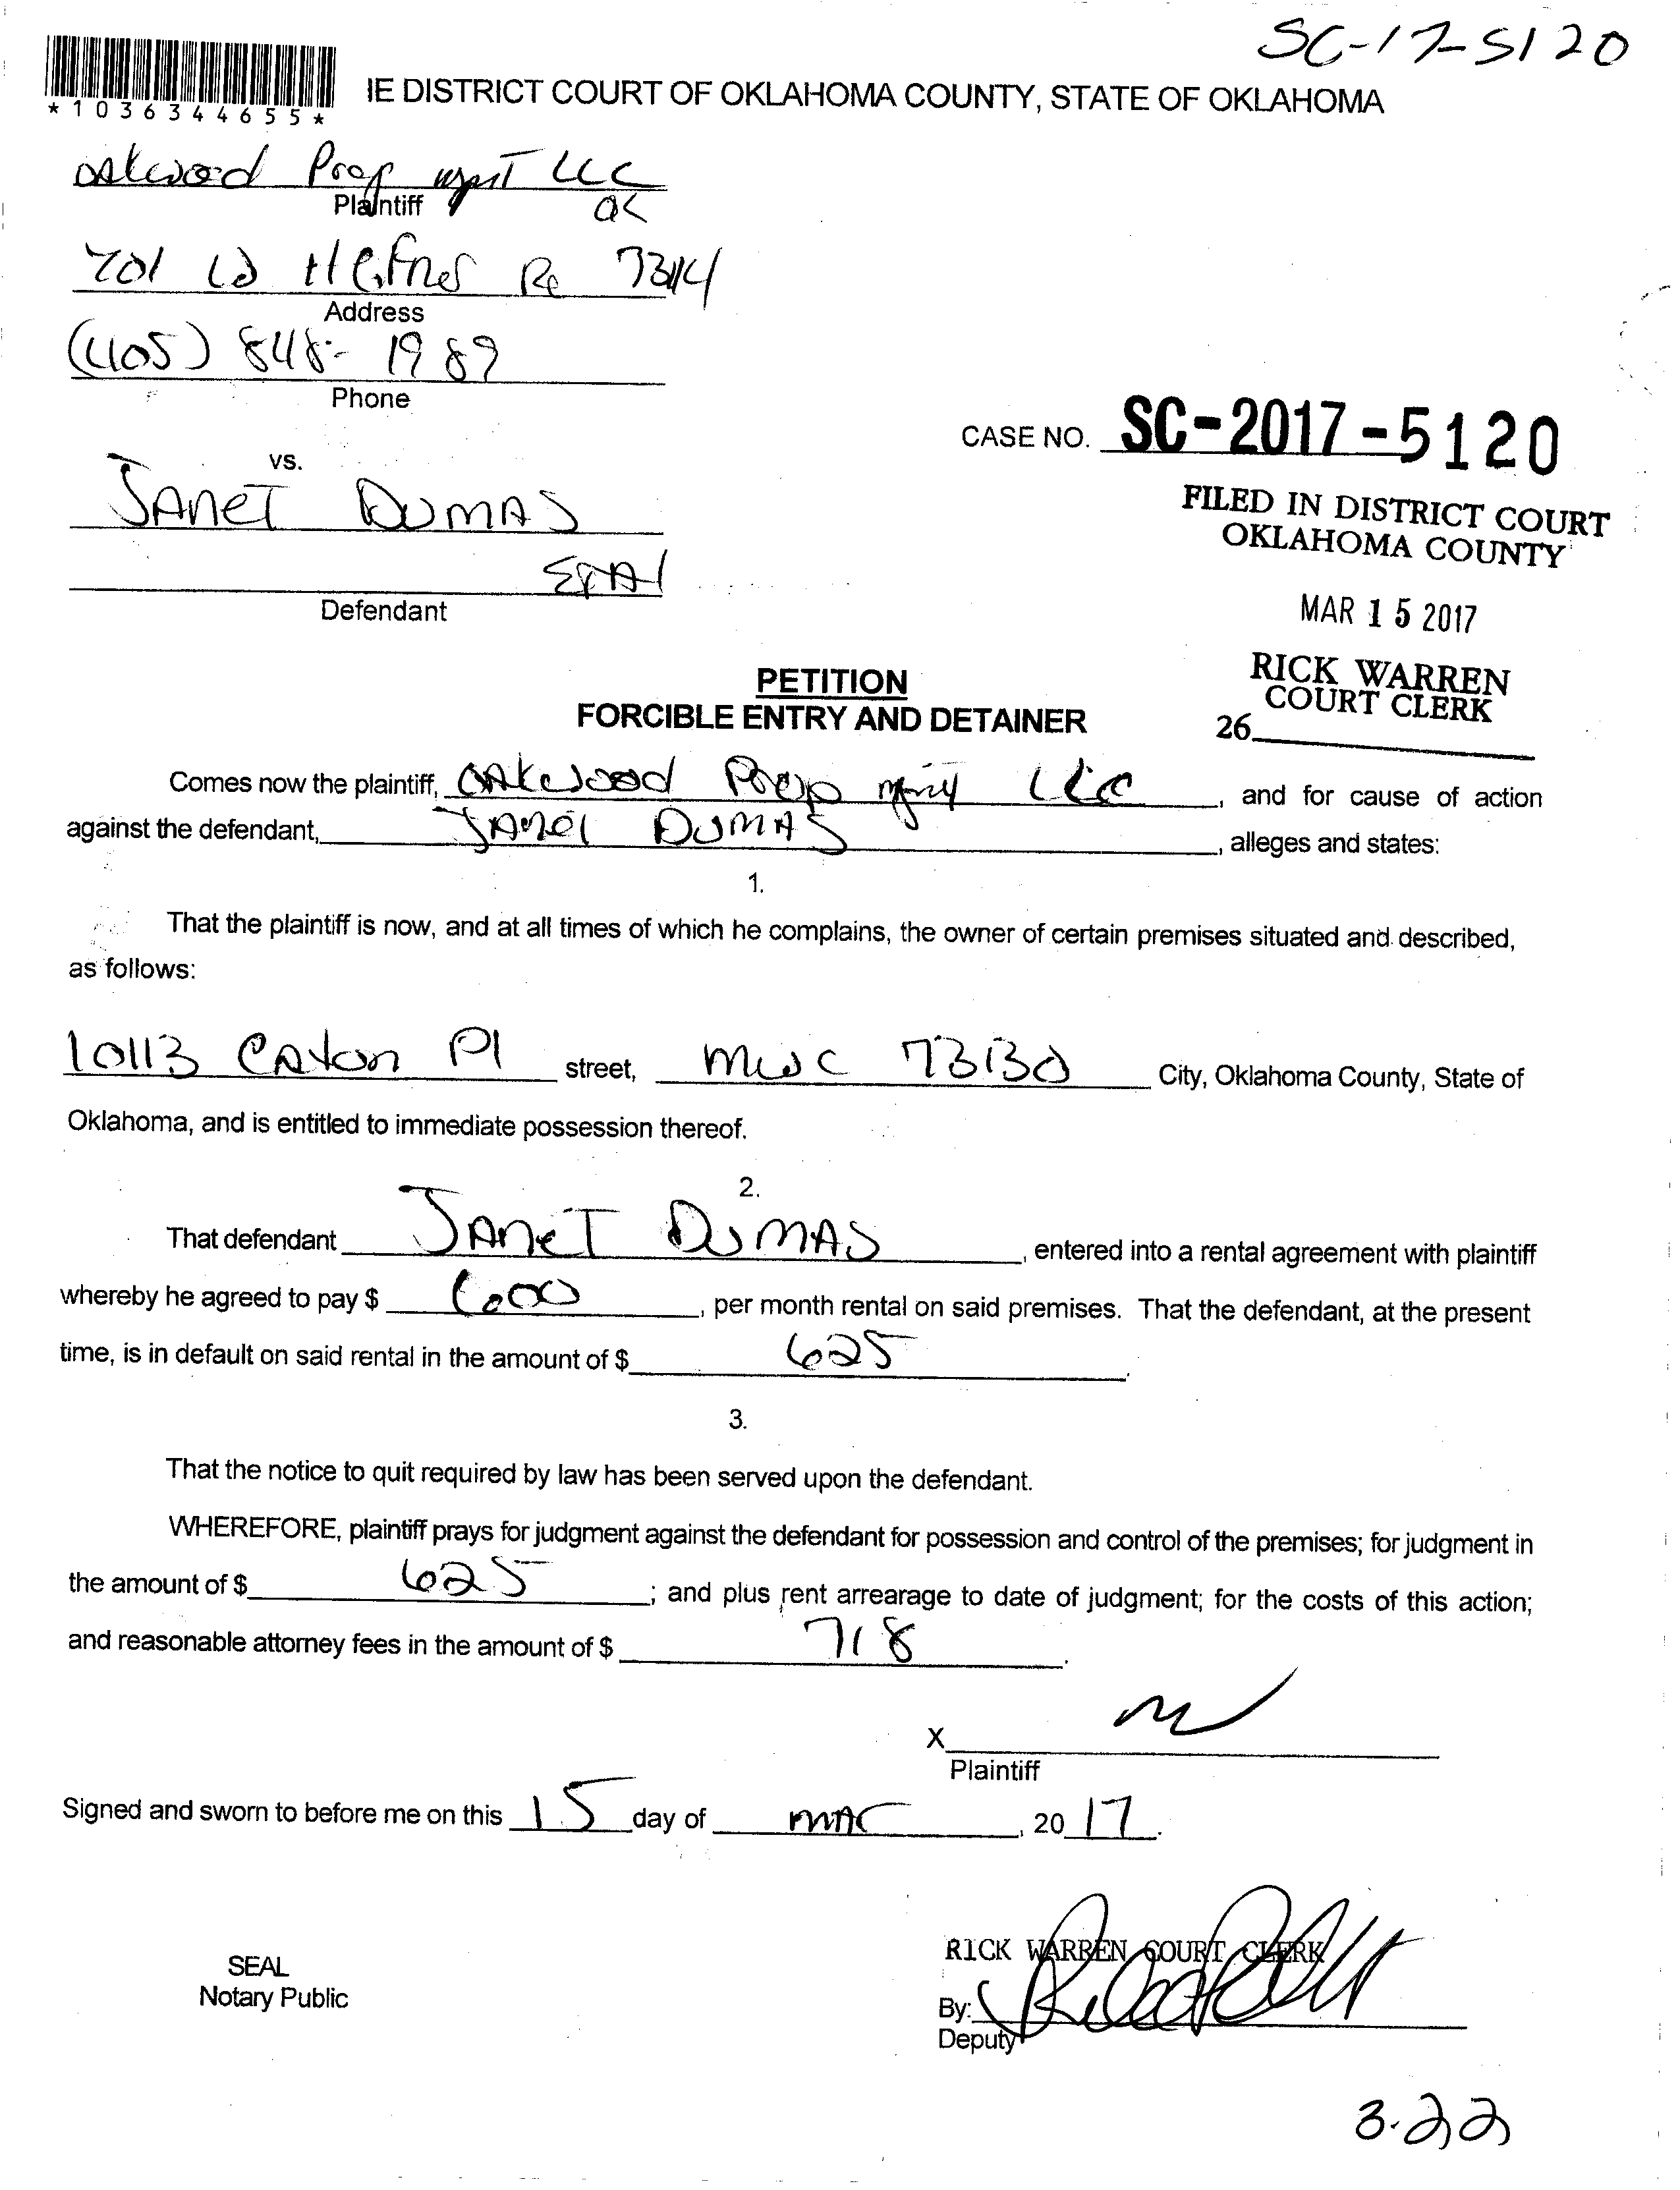 SC-17-5120
*1036344655*
IE DISTRICT COURT OF OKLAHOMA COUNTY, STATE OF OKLAHOMA
Oakwood Prop mgmt LLC
Plaintiff
OK
701 W Hefner Rd 73114
Address
(405) 848-1989
Phone
CASE NO. SC-2017-5120
vs.
JANET DUMAS
FILED IN DISTRICT COURT
OKLAHOMA COUNTY
Et Al
Defendant
MAR 15 2017
RICK WARREN
COURT CLERK
26
PETITION
FORCIBLE ENTRY AND DETAINER
Comes now the plaintiff, Oakwood Prop mgmt LLC, and for cause of action
against the defendant, JANET DUMAS, alleges and states:
1.
That the plaintiff is now, and at all times of which he complains, the owner of certain premises situated and described,
as follows:
10113 Caton Pl street, MWC 73130 City, Oklahoma County, State of
Oklahoma, and is entitled to immediate possession thereof.
2.
That defendant JANET DUMAS, entered into a rental agreement with plaintiff
whereby he agreed to pay $ 600, per month rental on said premises. That the defendant, at the present
time, is in default on said rental in the amount of $ 625.
3.
That the notice to quit required by law has been served upon the defendant.
WHEREFORE, plaintiff prays for judgment against the defendant for possession and control of the premises; for judgment in
the amount of $ 625; and plus rent arrearage to date of judgment; for the costs of this action;
and reasonable attorney fees in the amount of $ 718.
X
Plaintiff
Signed and sworn to before me on this 15 day of MAR, 20 17.
SEAL
Notary Public
RICK WARREN COURT CLERK
By:
Deputy
3-22